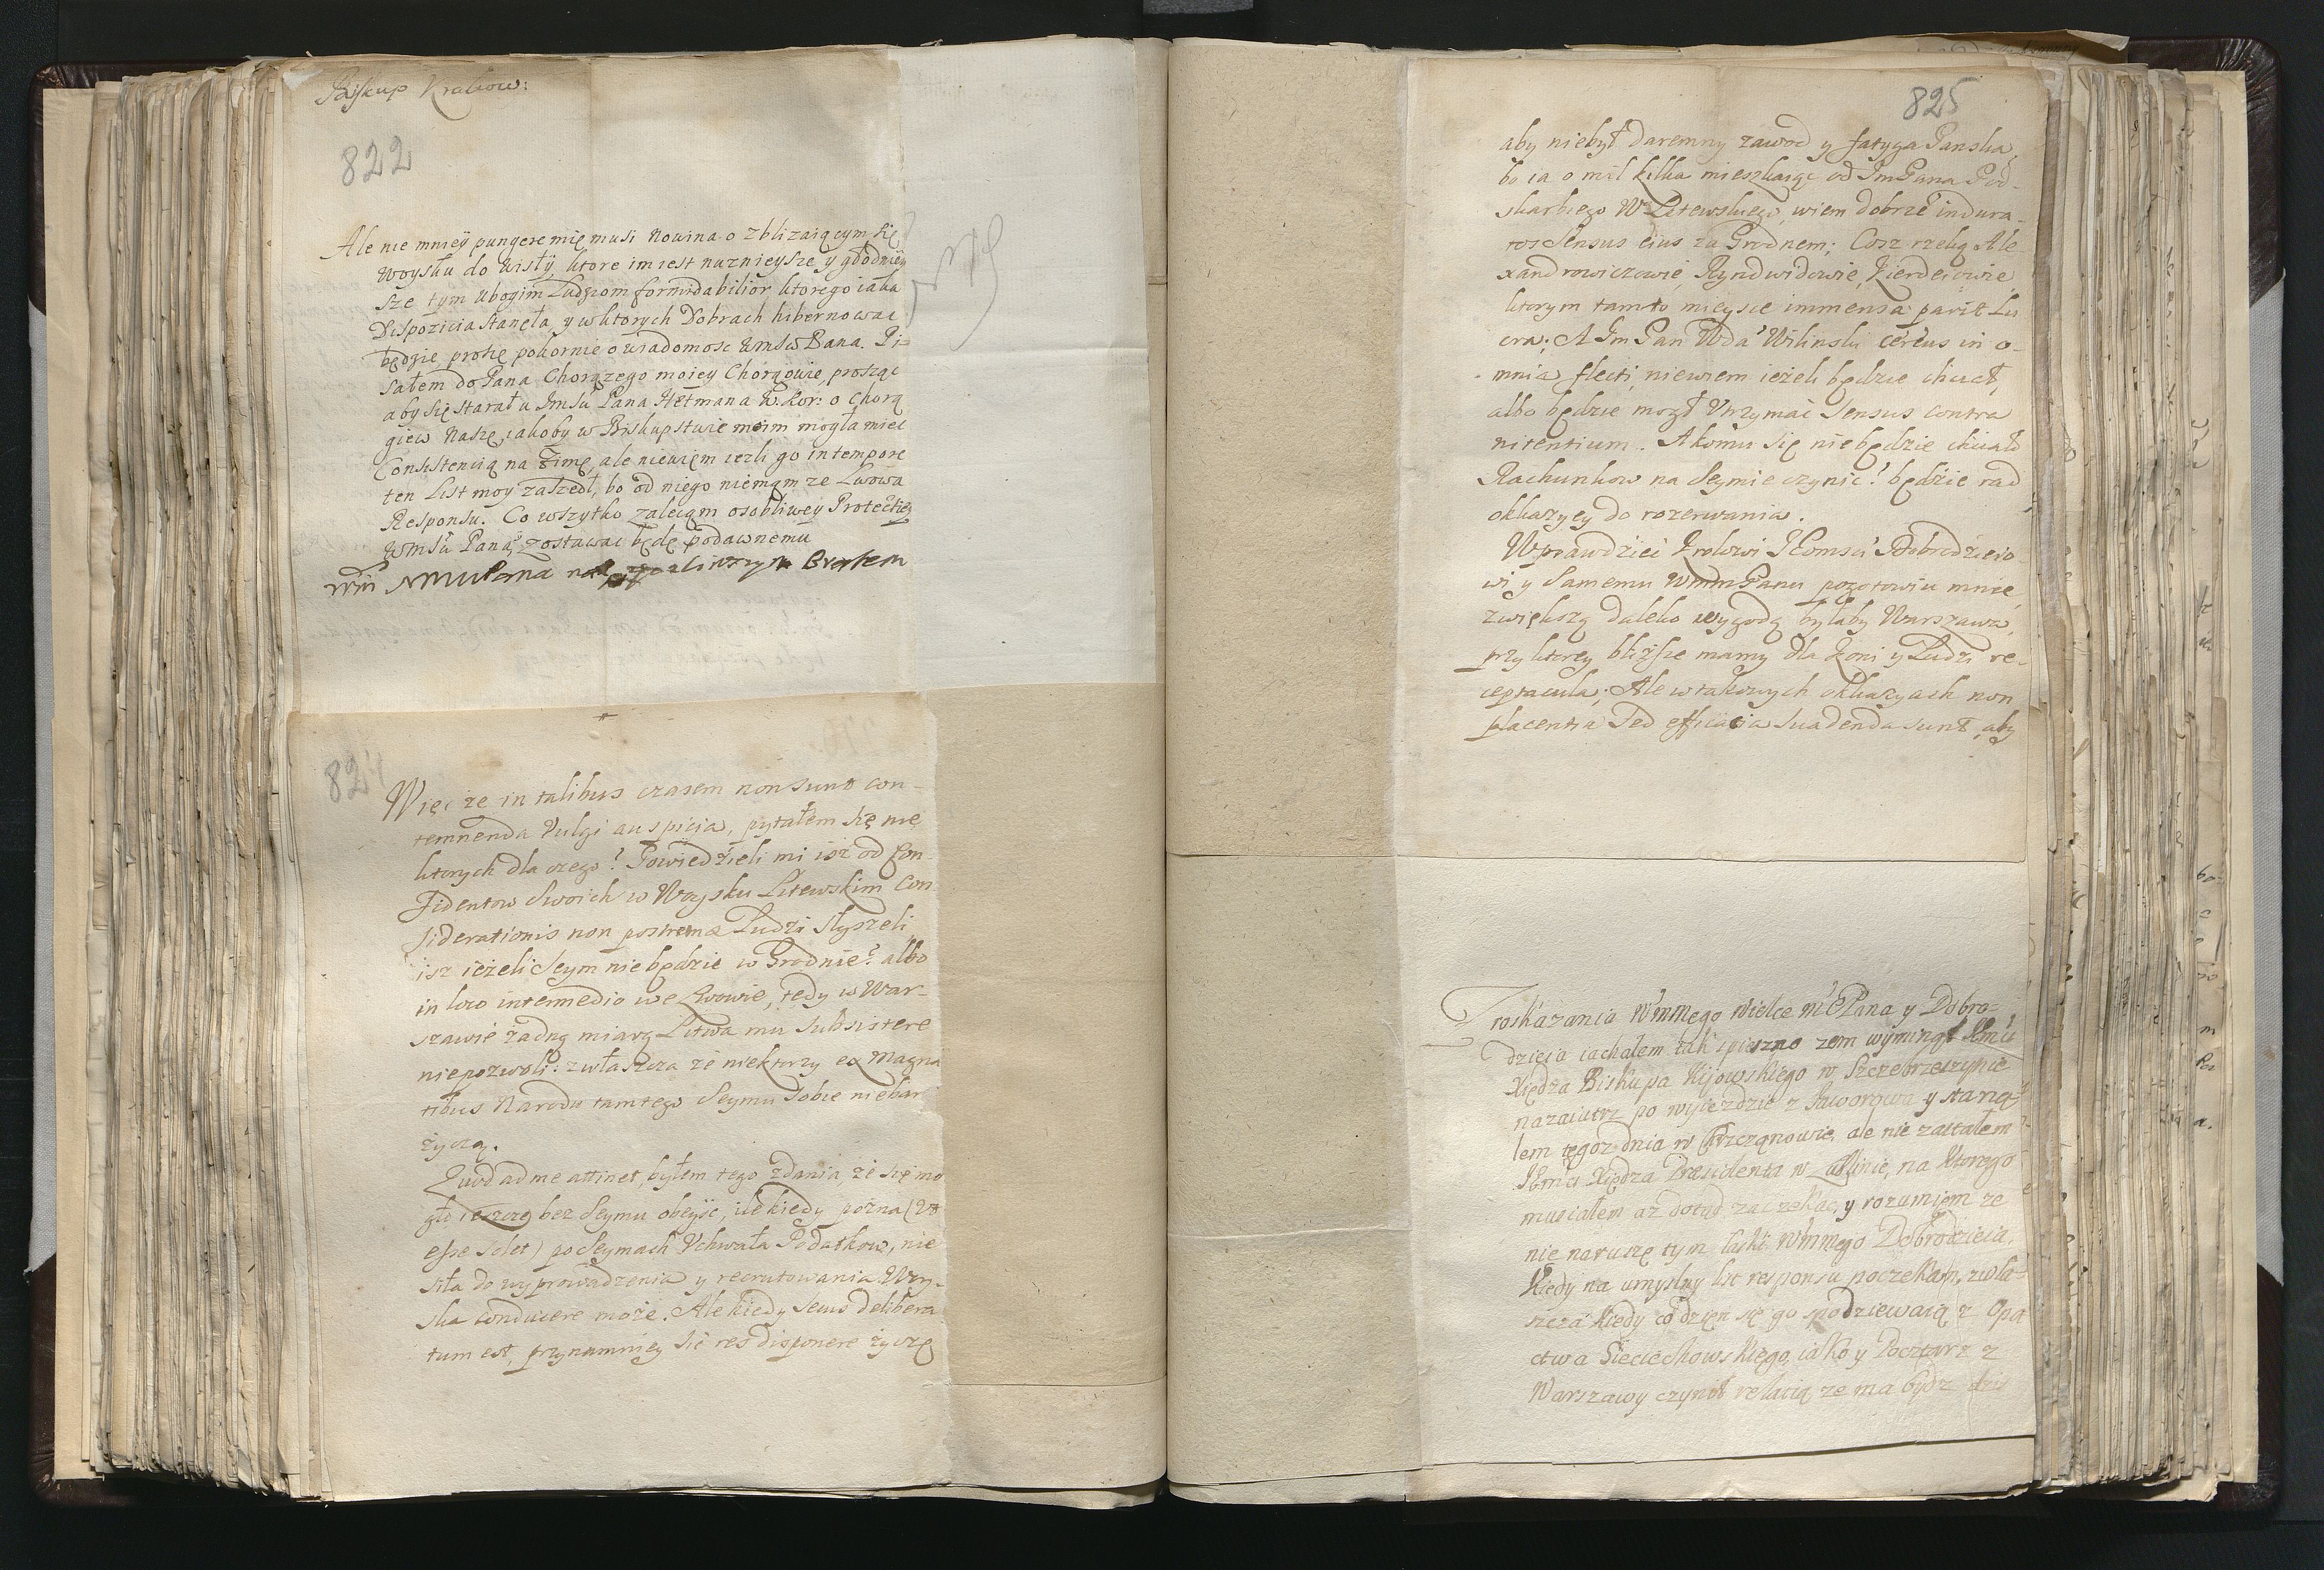 Biskup Krakow:
822
Ale nie mniey pungere mię musi nowina o zblizaiącym się
woysku do Wisły, ktore im iest nuznieysze y głodniey
sze tym ubogim Ludziom formidabilior ktorego iaka
Dispozicia stanęła, y w ktorych Dobrach hibernowac
będzie, proszę pokornie o wiadomosc WmSci Pana. Pi=
sałem do Pana Chorązego moiey Chorągwie, prosząc
aby się starał u Jmści Pana Hetmana W. Kor: o chorą
giew naszę, iakoby w Biskupstwie moim mogła miec
Consistencią na Zimę, ale niewiem iezli go in tempore
ten List moy zaszedł, bo od niego niemam ze Lwowa
Responsu. Co wszytko zalecam osobliwey Protectiey
WmSci Pana, zostawac będę podawnemu
Bratem
824
Więc że in talibus czasem non sunt con-
temnenda Vulgi auspicia, pytałem się nie
ktorych dla czego? Powiedzieli mi isz od Con-
fidentow swoich w Woysku Litewskim Con
siderationis non postremæ Ludzi słyszeli,
isz ieżeli Seym nie będzie w Grodnie? albo
in loco intermedio we Lwowie, tedy w War-
szawie żadną miarą Litwa mu subsistere
niepozwoli: zwłaszcza że niektorzy ex Magna
tibus Narodu tamtego Seymu sobie niebar
życzą.
Quod ad me attinet, byłem tego zdania, że się mo
gło ieszcze bez Seymu obeyść, ile kiedy pożna (Vt
esse solet) po Seymach Vchwała Podatkow, nie
siła do wyprowadzenia y recrutowania Woy-
ska conducere może. Ale kiedy secus delibera
tum est, przynamniey sic res disponere życzę
825
aby niebył daremny zawod y fatyga Panska,
bo ia o mil kilka mieszkaiąc od Jm Pana Pod-
skarbiego W Litewskiego, wiem dobrze indura-
tos Sensus eius za Grodnem; Cosz rzeką Ale
xandrowiczowie, Ryndwidowie, Kierdeiowie,
ktorym tamto mieysce immensa parit Lu
cra; A Jm Pan Wda Wilinski cereus in o-
mnia flecti, niewiem ieżeli będzie chciał,
albo będzie mogł Vtrzymać Sensus contra
nitentium. A komu się niebędzie chciało
Rachunkow na Seymie czynić? będzie rad
okkazyey do rozerwania.
Wprawdzieć Krolowi JEomsci Dobrodzieio
wi y samemu WmmPanu pogotowiu mnie,
zwiększą daleko wygodą byłaby Warszawa,
przy ktorey bliższe mamy dla Koni y Ludzi re-
ceptacula; Ale w takowych okkazyach non
placentia sed efficacia suadenda sunt, aby
Z roskazania Wmmego wielce mego Pana y Dobro-
dzieia iachałem tak spieszno zem wyminął Jmci
Xiędza Biskupa Kijowskiego w Szczebrzeszynie
nazaiutrz po wyiezdzie z Jaworowa y staną-
łem tegoz dnia w Krzczonowie, ale nie zastałem
JEmci Xiędza Præsidenta w Lublinie, na ktorego
musiałem az dotąd zaczekac, y rozumiem ze
nie naruszę tym łaski Wmmego Dobrodzieia,
kiedy na umyslny list responsu poczekam, zwła-
szcza kiedy co dzien się go spodziewaią z Opa
ctwa Sieciechowskiego, iako y Pocztarz z
Warszawy czynił relacią ze ma bydz